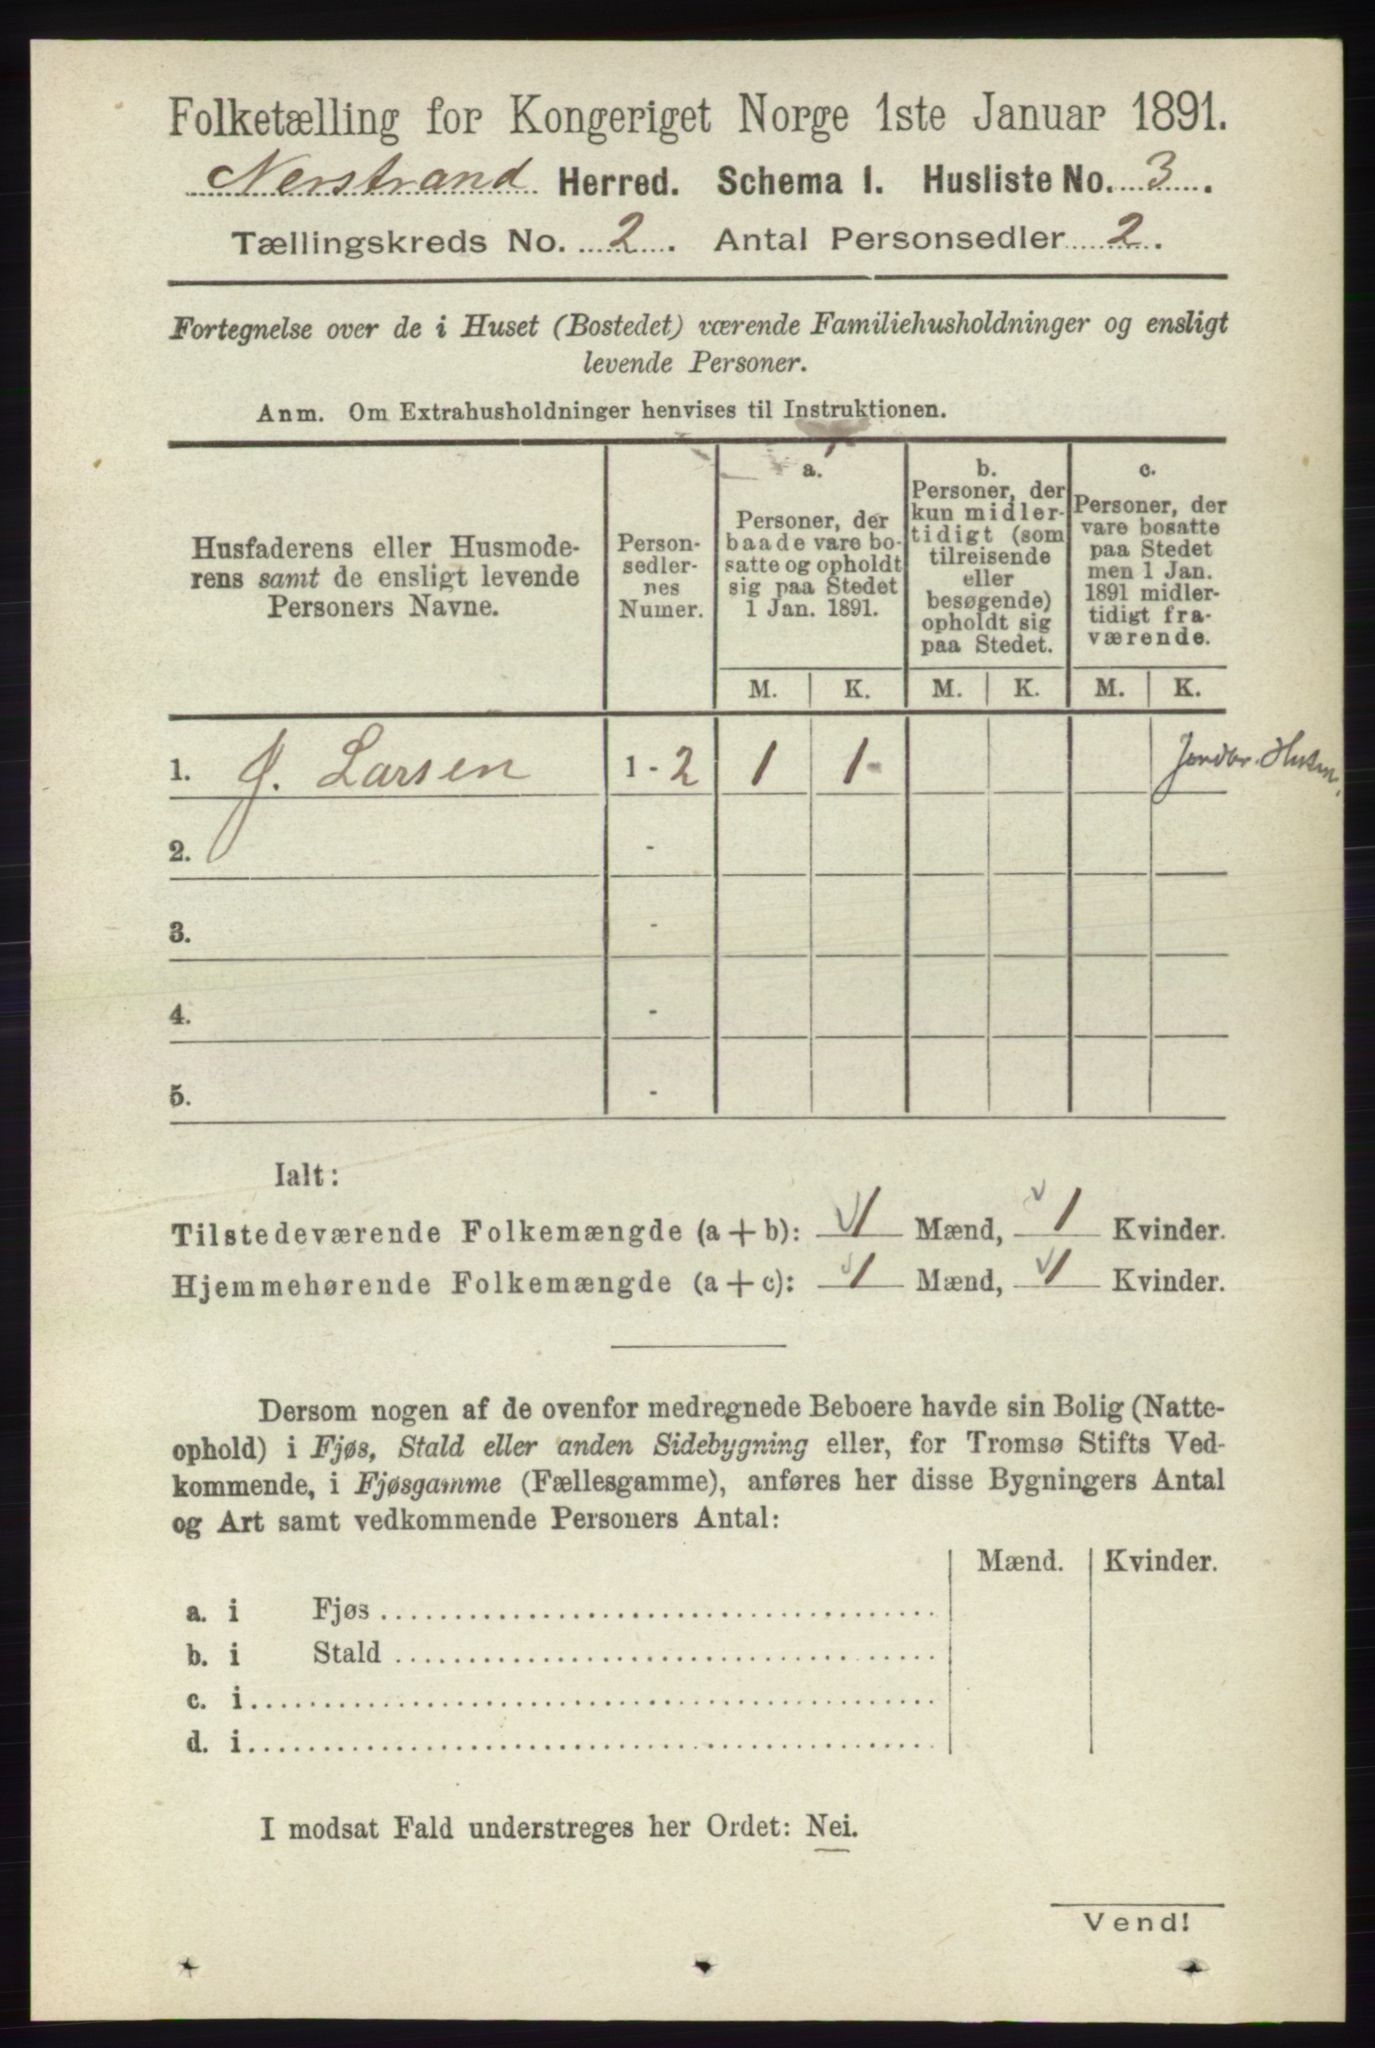 Folketælling for Kongeriget Norge 1ste Januar 1891.
Nerstrand Herred. Schema 1. Husliste No. 3.
Tællingskreds No. 2. Antal Personsedler 2.
Fortegnelse over de i Huset (Bostedet) værende Familiehusholdninger og ensligt
levende Personer.
Anm. Om Extrahusholdninger henvises til Instruktionen.
Husfaderens eller Husmode-
rens samt de ensligt levende
Personers Navne.
Person-
sedler-
nes
Numer.
a.
Personer, der
baade vare bo-
satte og opholdt
sig paa Stedet
1 Jan. 1891.
b.
Personer, der
kun midler-
tidigt (som
tilreisende
eller
besøgende)
opholdt sig
paa Stedet.
c.
Personer, der
vare bosatte
paa Stedet
men 1 Jan.
1891 midler-
tidigt fra-
værende.
M. K. M. K. M. K.
1. J. Larsen 1 - 2 1 1
2. -
3. -
4. -
5. -
Ialt:
Tilstedeværende Folkemængde (a + b): 1 Mænd, 1 Kvinder.
Hjemmehørende Folkemængde (a + c): 1 Mænd, 1 Kvinder.
Dersom nogen af de ovenfor medregnede Beboere havde sin Bolig (Natte-
ophold) i Fjøs, Stald eller anden Sidebygning eller, for Tromsø Stifts Ved-
kommende, i Fjøsgamme (Fællesgamme), anføres her disse Bygningers Antal
og Art samt vedkommende Personers Antal:
Mænd. Kvinder.
a. i Fjøs
b. i Stald
c. i
d. i
I modsat Fald understreges her Ordet: Nei.
Vend!